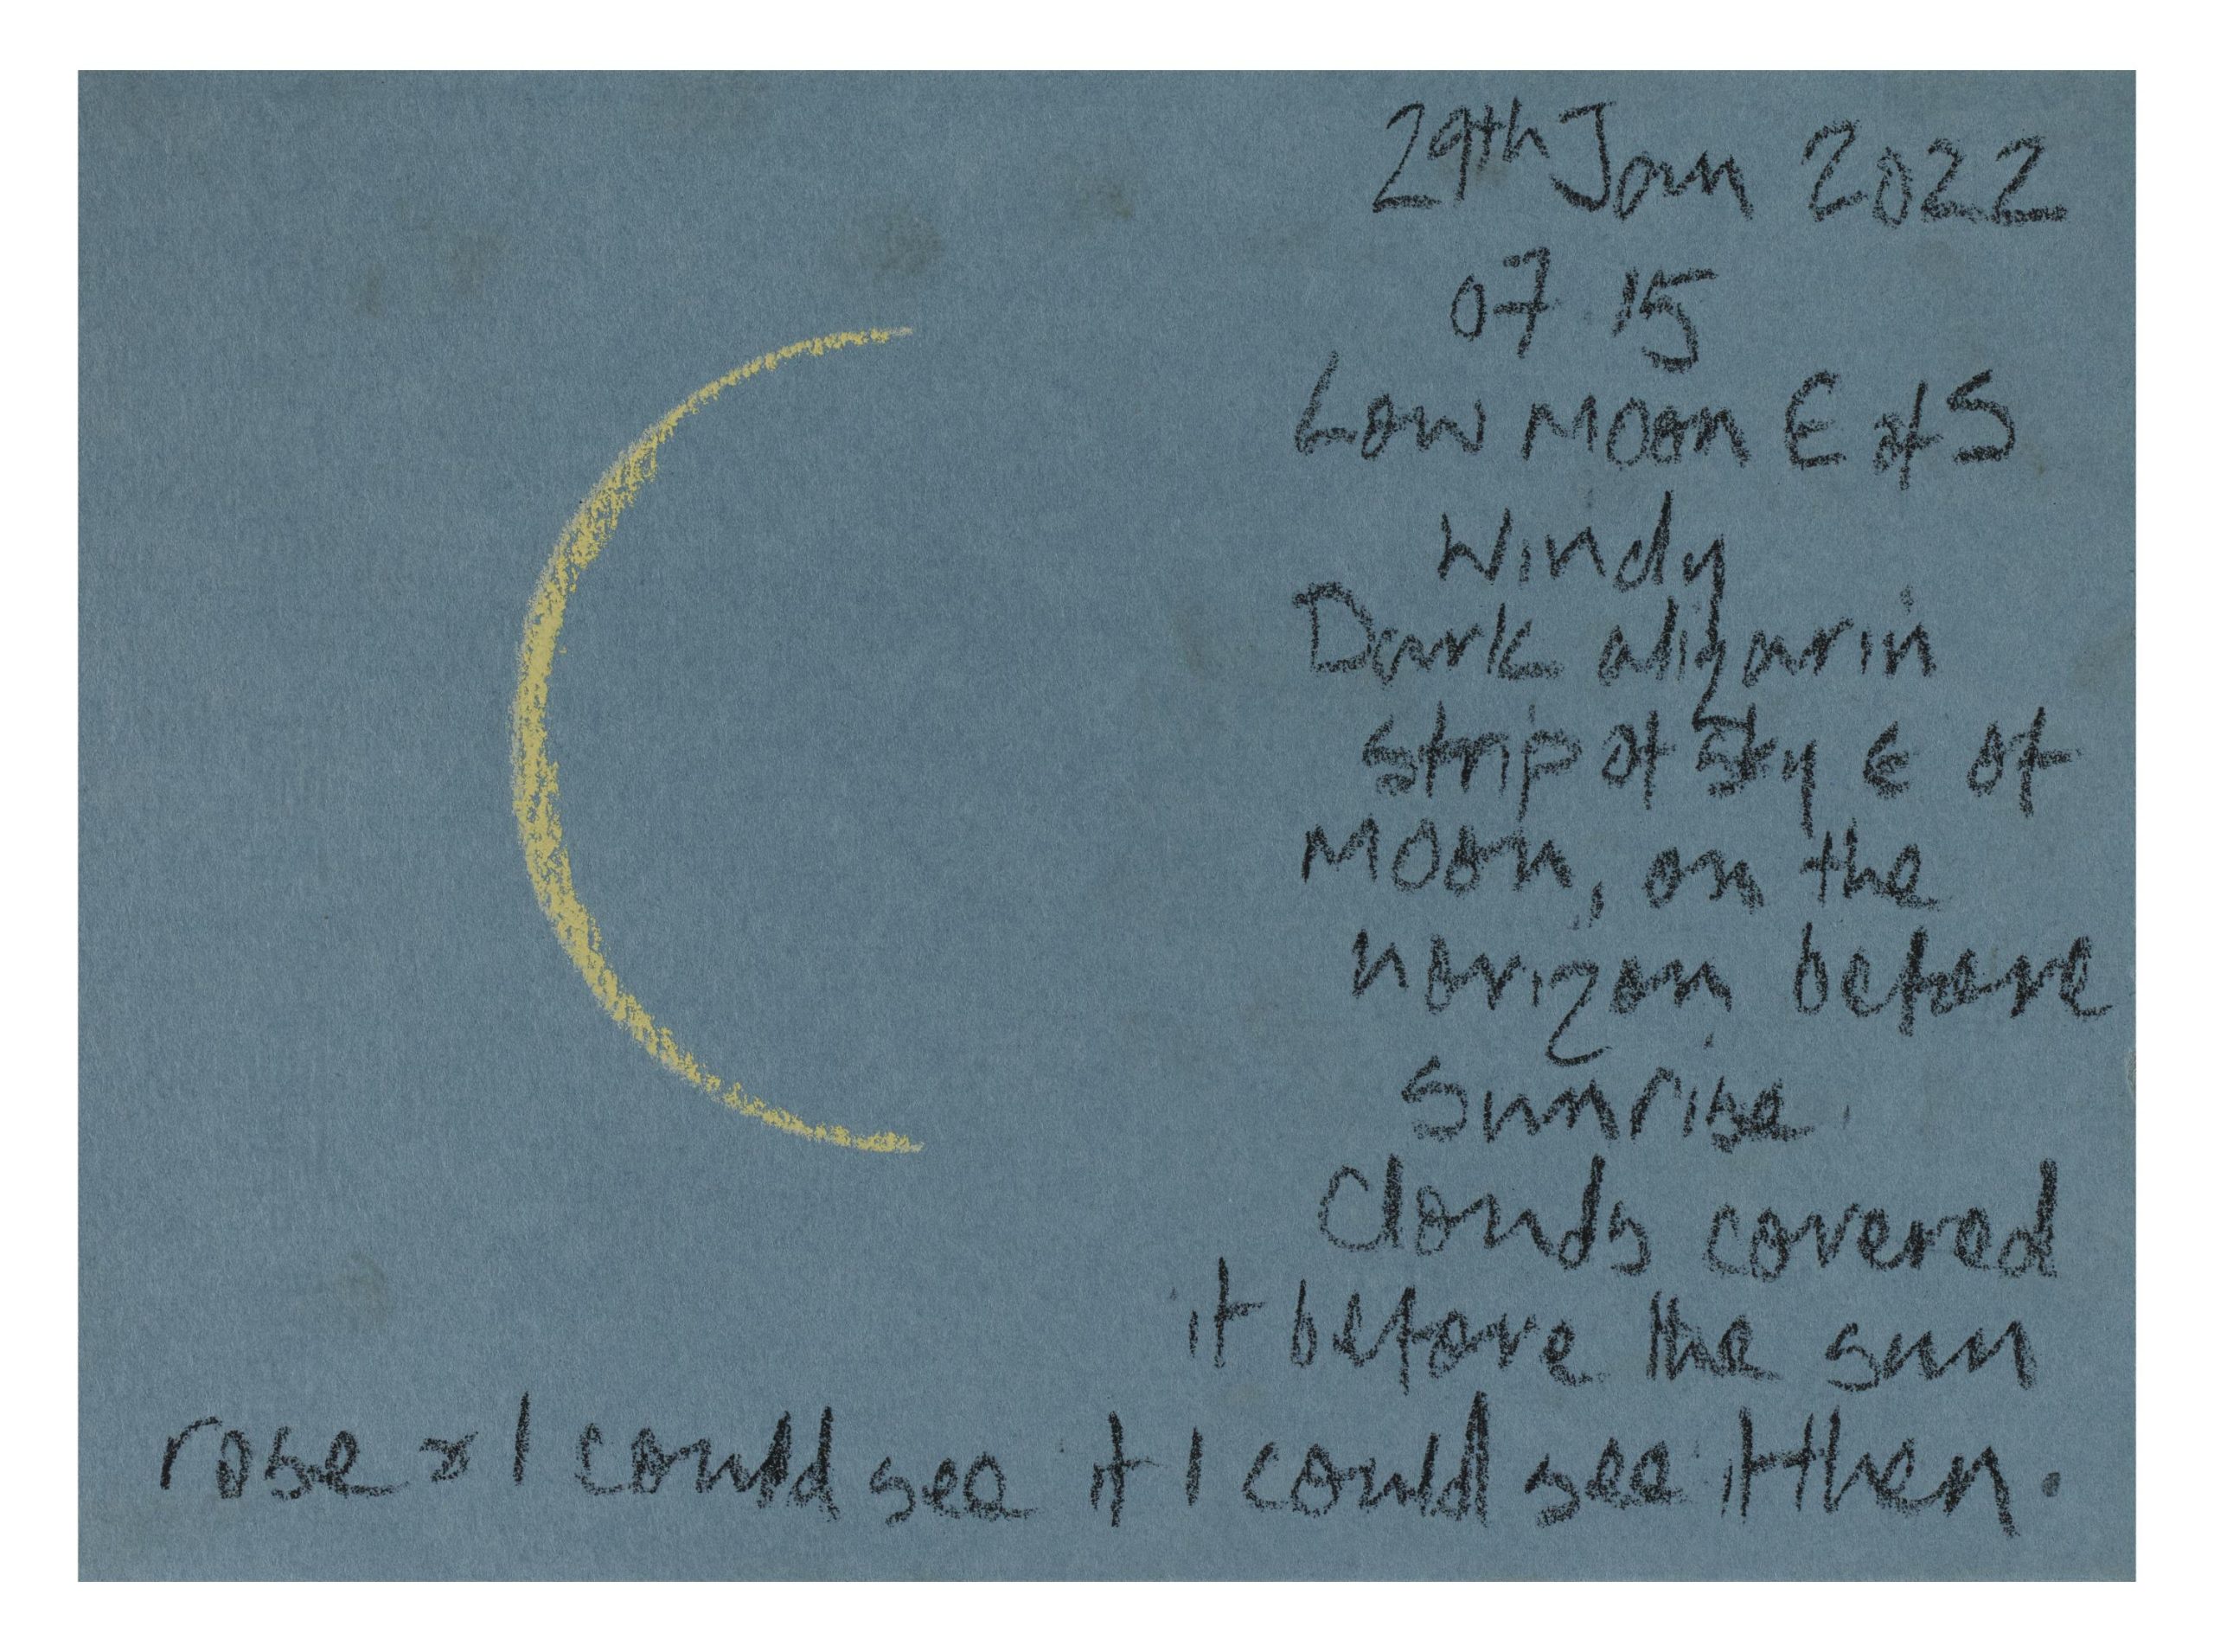 29th Jan 2022
07 15
Low Moon E of S
Windy
Dark alizarin
strip of sky E of
Moon, on the
horizon before
sunrise
Clouds covered
it before the sun
rose I could see if I could see it then.